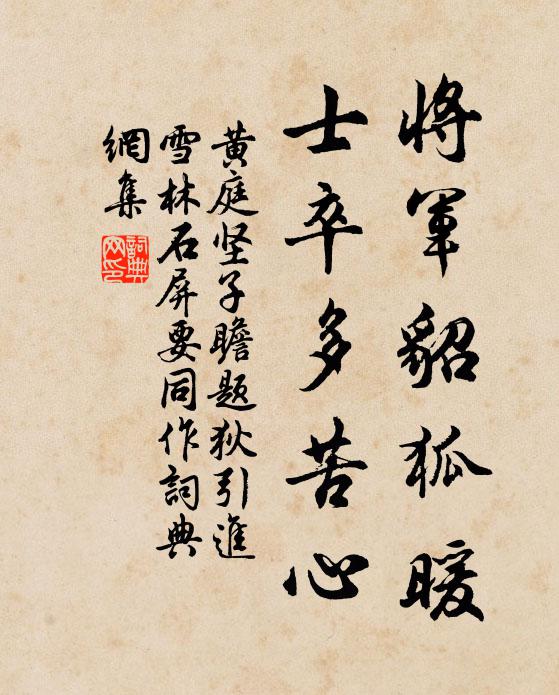 將軍貂狐暖
士卒多苦心
黄庭坚子瞻題狄引進
雪林石屏要同作詞典
網集
詞典
网印